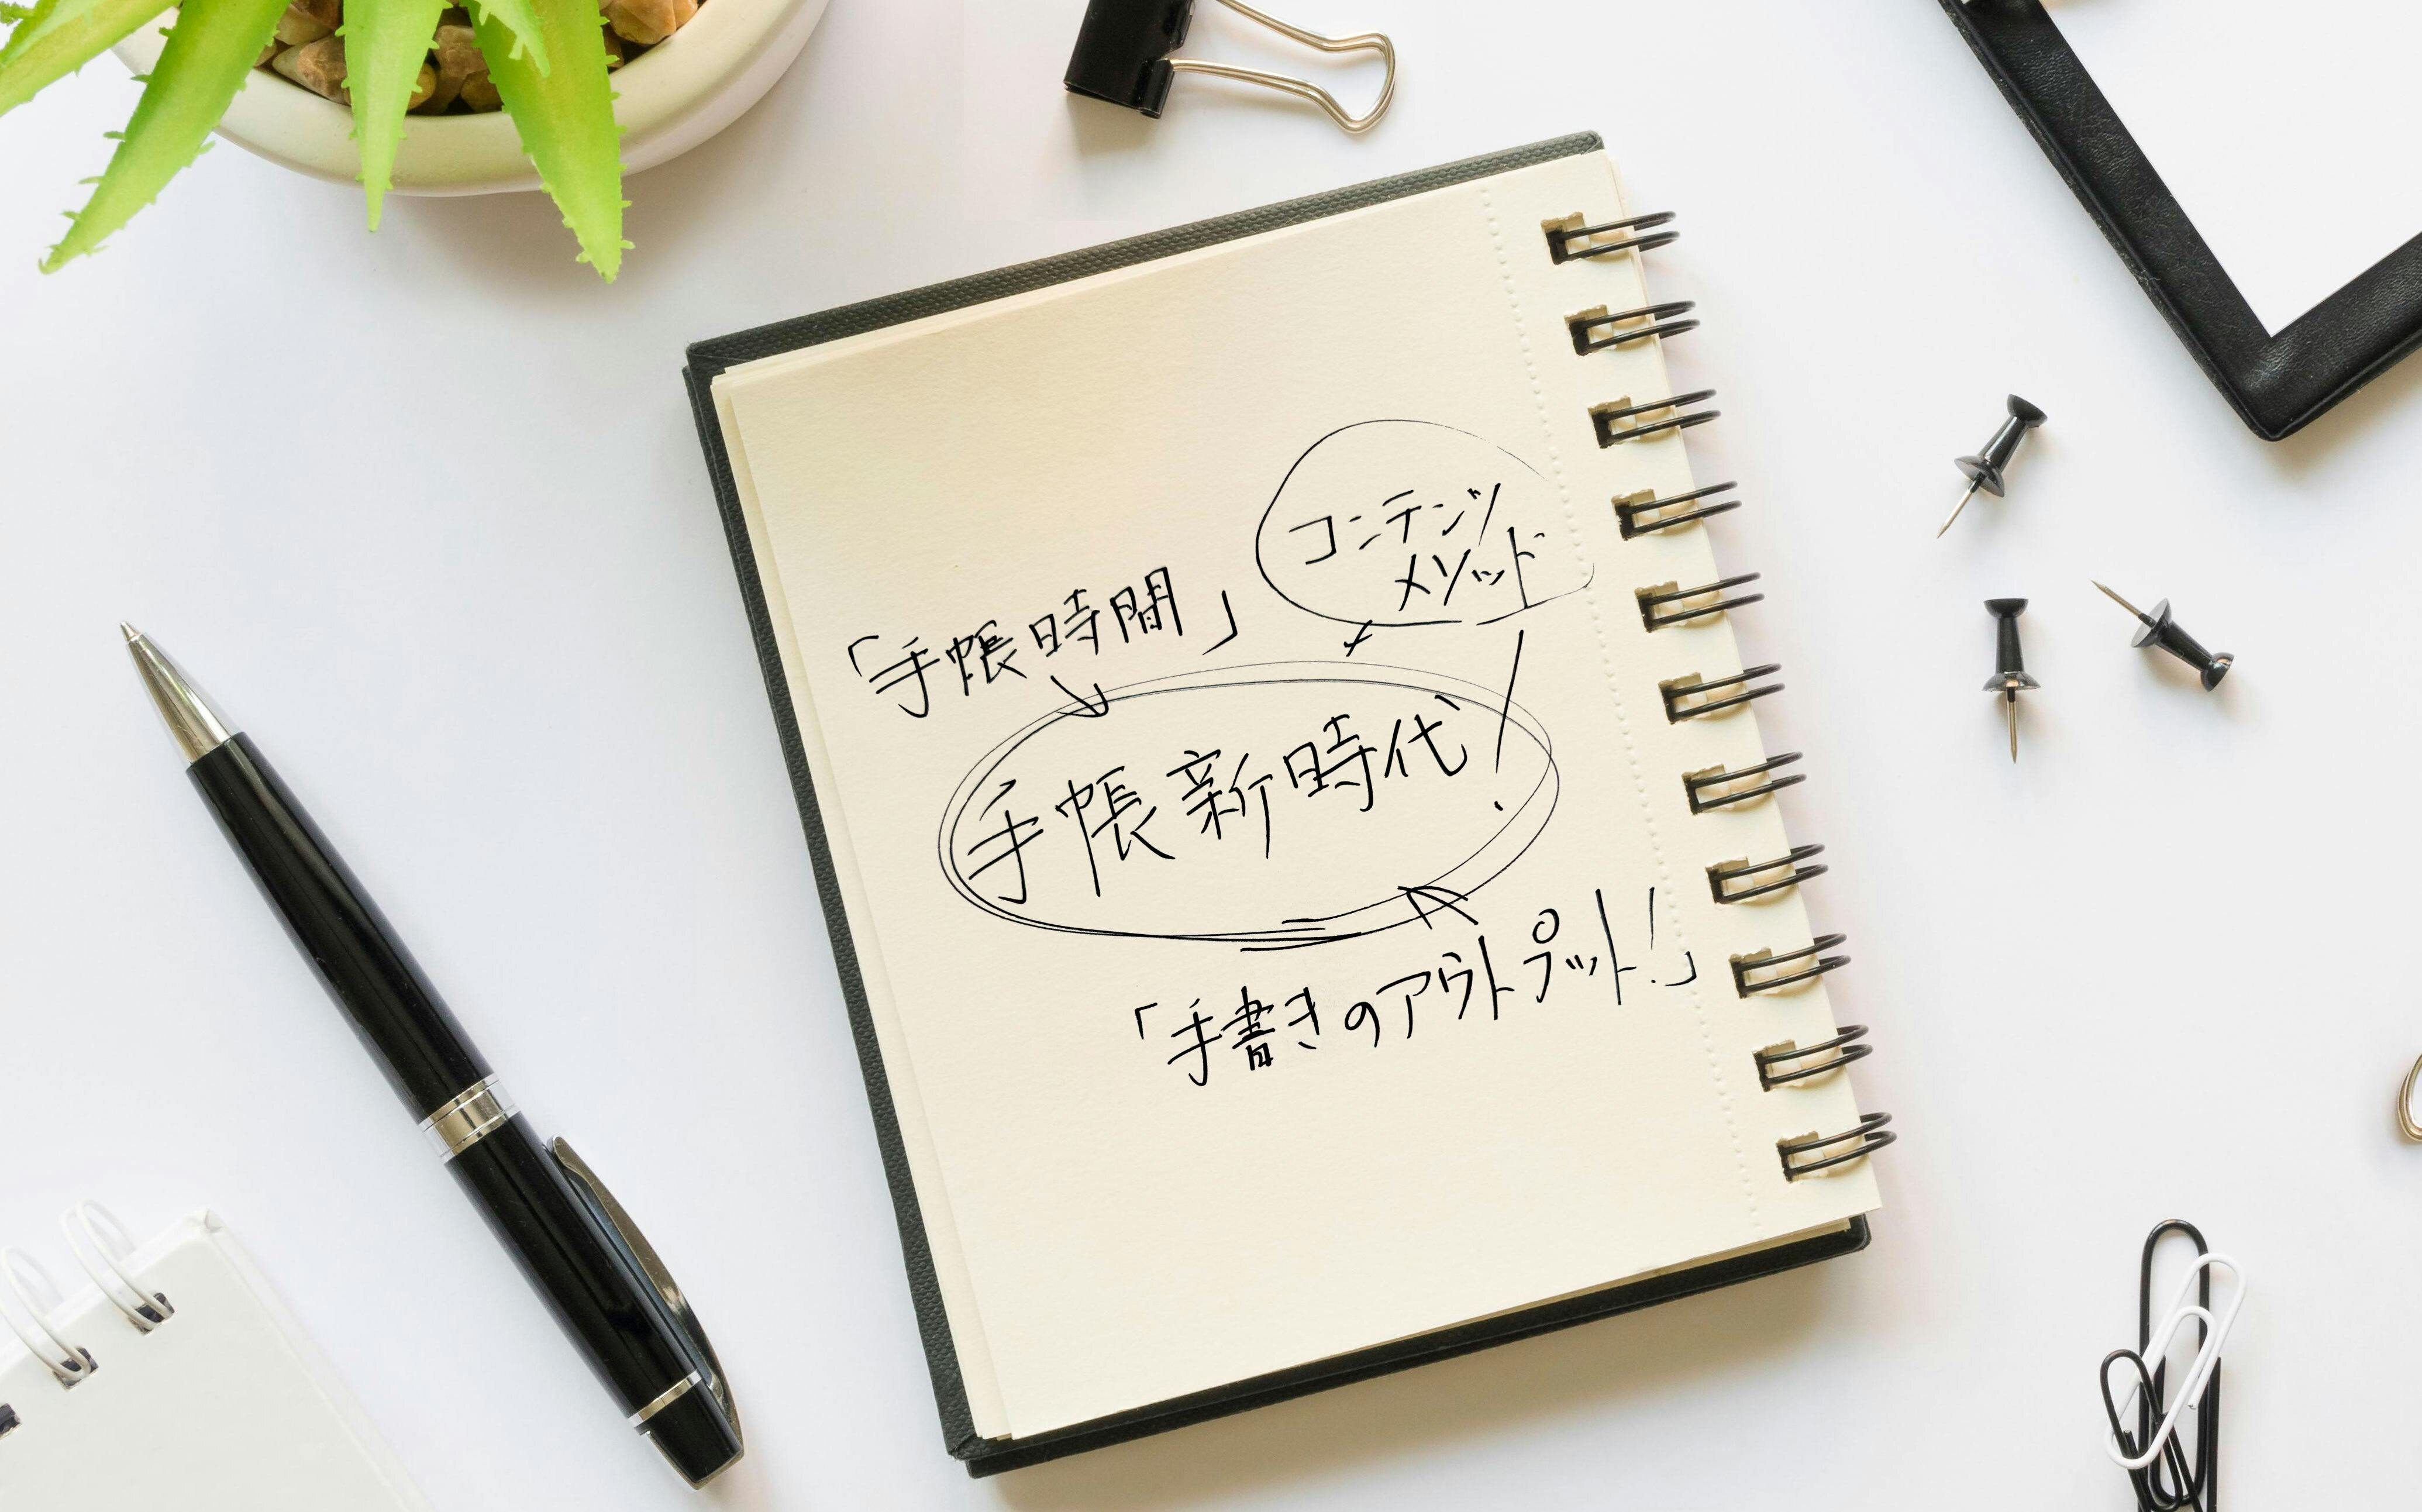 コンテンツ
メソッド
「手帳時間」
手帳新時代!
「手書きのアウトプット!」